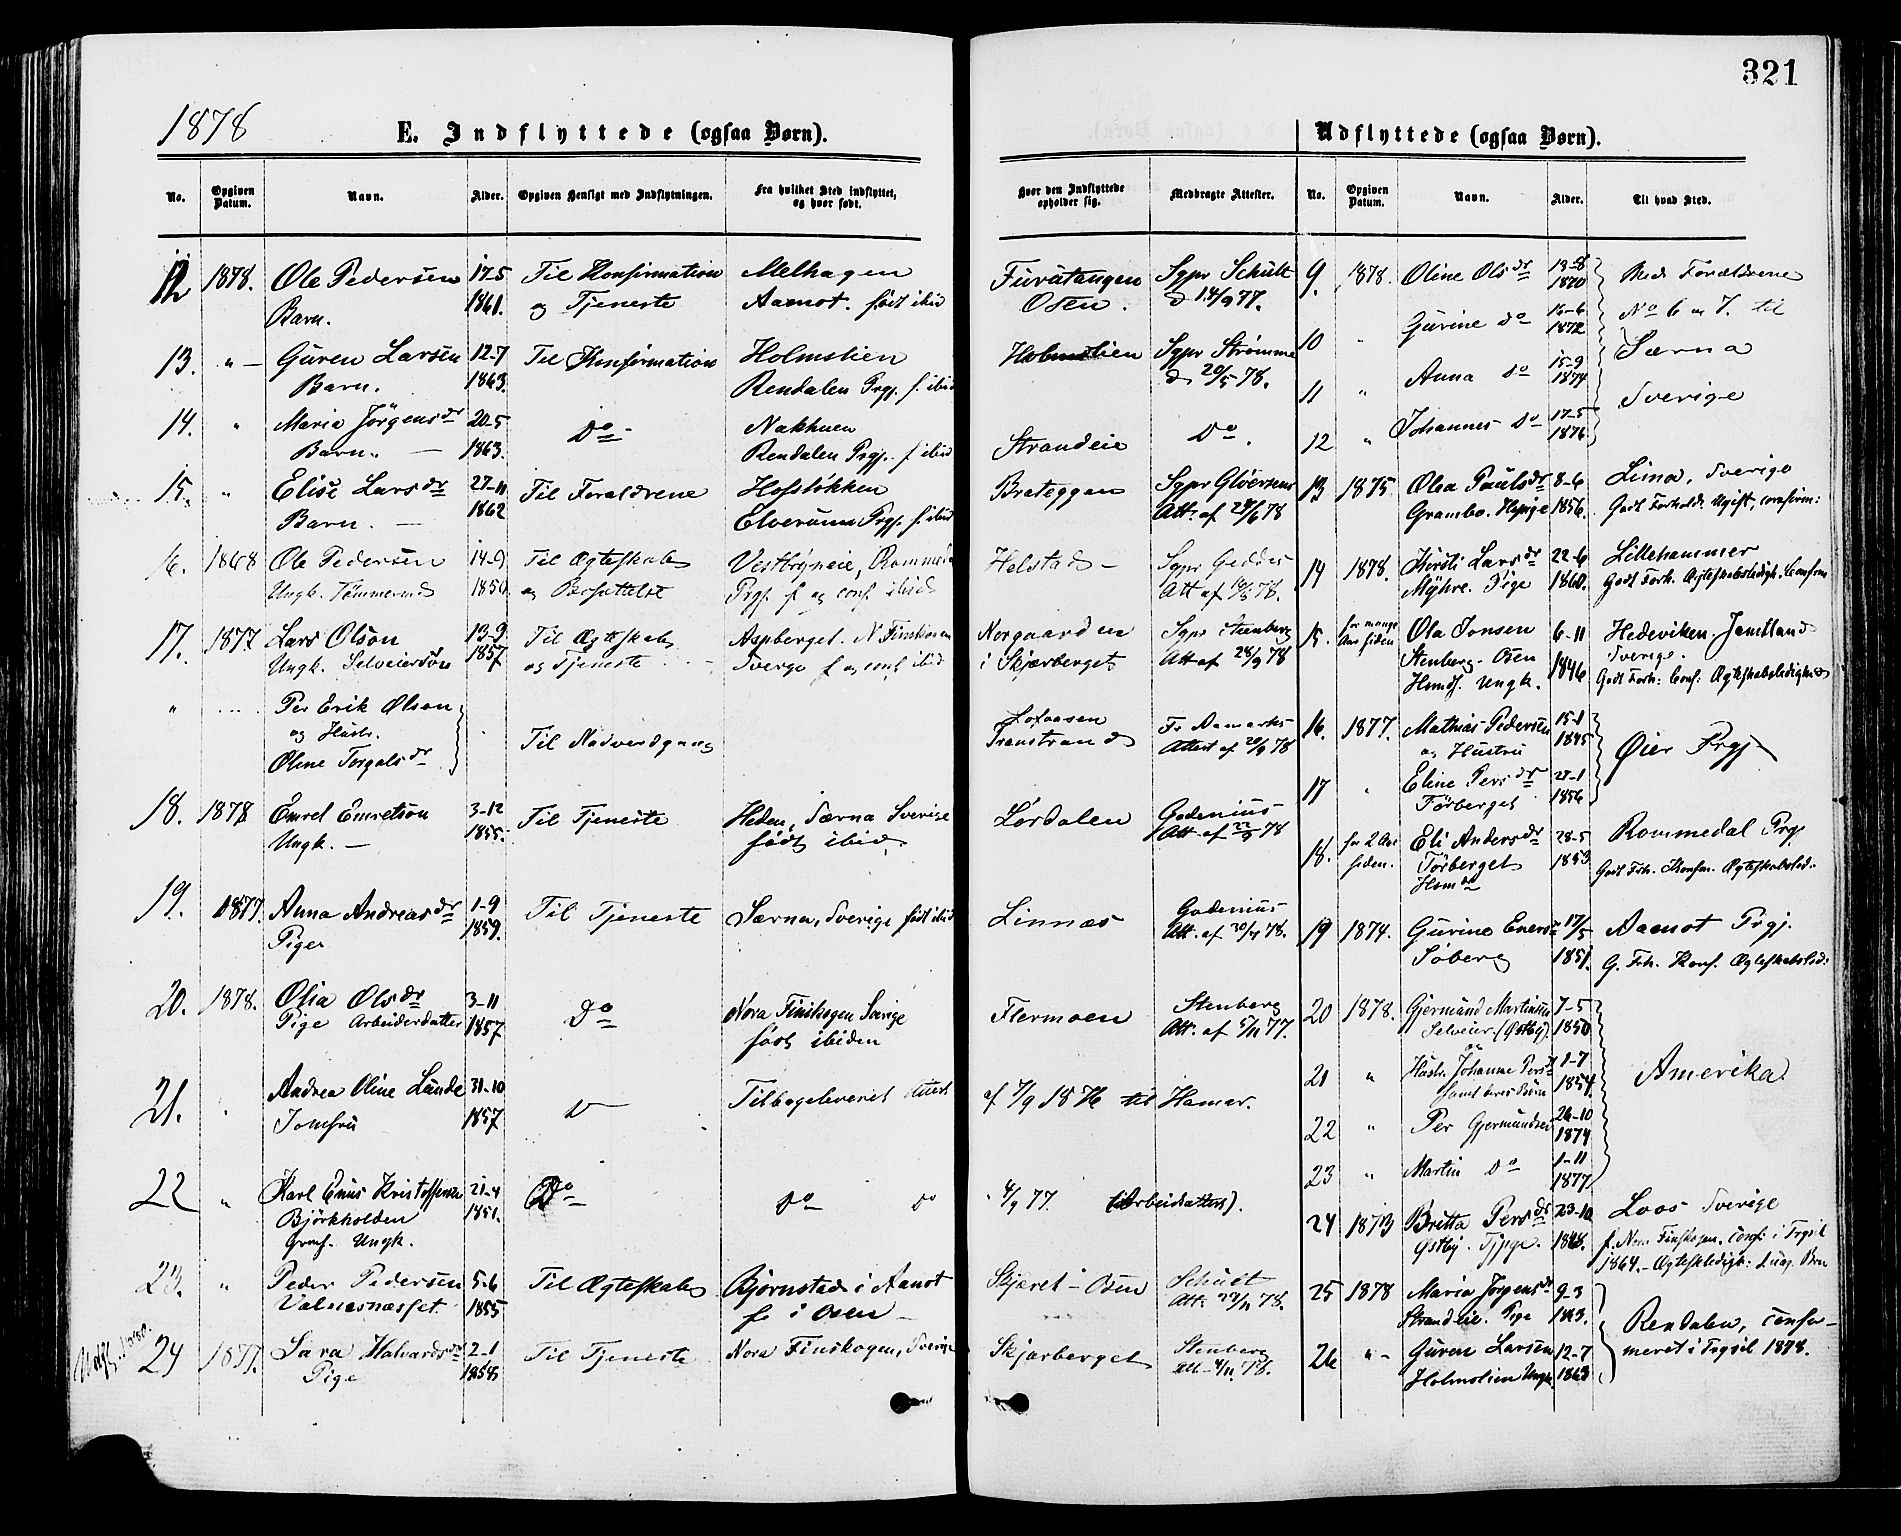 321
1878
E. Indflyttede (ogsaa Børn).
No.
Opgiven Datum.
Navn.
Alder.
Opgiven Hensigt med Indflytningen.
Fra hvilket Sted indflyttet, og hvor født.
Hvor den Indflyttede opholder sig.
Medbragte Attester.
12 1878. Ole Pedersen 17-5 Til Konfirmation Melhagen Furutangen Sgpr Schult
Barn. 1861. og Tjeneste Aamot. født ibid Osen. d 14/9 77.
13. " Guren Larsen 12-7 Til Konfirmation Holmslien Holmslien Sgpr Strømme
Barn. 1863. Rendalen Prgj. f. ibid d 20/5 78.
14. " Maria Jörgensdr 20-5 Do Nakhuen Strandeie Do.
Barn. 1863. Rendalen Prgj. f ibid
15. " Elise Larsdr 27-11 Til Foraldrene Hofsløkken Brateggen Sgpr Gløersens
Barn. 1862 Elverum Prgj. f. ibid Att. af 28/6 78
16. 1868 Ole Pedersen 14-9 Til Ægteskab Vestbyneie, Rommedal Helstad Sgpr Geddes
Ungk. 1850. og Bosættelse Prgj. f og conf. ibid Att af 78.
17. 1877 Lars Olson 13-9 Til Ægteskab Aspberget. N. Finskogen Norgaarden Sgpr Stenberg
Ungk. Selveiersön 1857 og Tjeneste Sverge f og conf ibid i Skjærberget Att af 28/9 78
" Per Erik Olson
og Hustr. Til Nadverdgang Transtrand Attest af 20/9 78
Oline Torgalsdr
18. 1878 Emret Emretson 3-12 Til Tjeneste Heden, Særna Sverige Lørdalen Godenius
Ungk. 1855. født ibid. Att. af 22/9 78
19. 1877. Anna Andreasdr 1-9 Til Tjeneste Særna, Sverige født ibid Linnæs Godenius
Pige 1859. Att. af 30/4 78.
20. 1878. Olia Olsdr 3-11 Do Nora Finskogen Sverige Flermoen Stenberg
Pige Arbeiderdatter 1857. født ibiden Att. af 5/11 77.
21. Andrea Oline Lunde 31-10 Do Tilbageleveret Attest af 7/9 1876 til Hamar.
Jomfru 1857
22 " Karl Enus Kristoffersen 21-4 Do Do Do 4/9 77 (Arbeidsattest).
Björkholden 1851.
Ungk.
23. " Peder Pedersen 5-6 Til Ægteskab Bjørnstad i Aamot Skjæret - Osen Schult
Valnesnæsset 1855 f. i Osen Att. 78.
24 1877. Sara Halvardsdr 2-1 Til Tjeneste Nora Finskogen, Sverige Skjærberget Stenberg
Pige 1858 Att 4/11 78.
Udflyttede (ogsaa Børn).
No.
Opgiven Datum.
Navn.
Alder.
Til hvad Sted.
9. 1878. Oline Olsdr 13-8 1870 Med Foræeldrene
10 " Gurine do 16-6 1872 No 6 og 7. til
11 " Anna do 15-9 1874 Særna
12 " Johannes do 17-5 1876 Sverige
13 1875 Olea Paulsdr 8-6 Lima, Sverige
Grambo. 1856. Godt Forhold. Ugift, confirm:
14 1878. Kirsti Larsdr 22-6 Lillehammer
Myhre. Pige 1860. Godt Forh. Ægteskabsledigh. Confirm
15. for mange Aar siden Ola Jonsen 6-11 Hedeviken Jemtland
Stenberg - Osen 1846 Sverige.
Ungk. Godt Forh: Conf: Ægteskabsledighed
16. 1877. Mathias Pedersen 15-1 1845 Øier Prgj
og Hustru
17 " Eline Persdr 27-1
Törberget 1856
18. for 2 Aar siden. Eli Andersdr 28-5 Rommedal Prgj
Törberget 1853 Godt Forh. Konfm. Ægteskabsled.
19 1874. Gurine Enersdr 17/5 Aamot Prgj.
Söberg 1851. G. Frh. Konf. Ægteskabsled:
20 1878. Gjermund Martinsen 7-5
Selveier (Østby). 1850
og
21 " Hustr. Johanne Persdr 1-7 Amerika.
samt deres Børn 1854.
22 " Per Gjermundsen 26-10 1874
23 " Martin do 1-11 1877
24 1873 Britta Persdr 23-10 Loos Sverige
Østby. 1848. f. Nora Finskogen. Conf: i Trysil
1864. - Ægteskledigh:
25 1878 Maria Jorgensdr 9-3
Strandeie. Pige 1863. Rendalen, confir-
26 " Guren Larsen 12-7 meret i Trysil 1878.
Holmslien Ungk. 1863